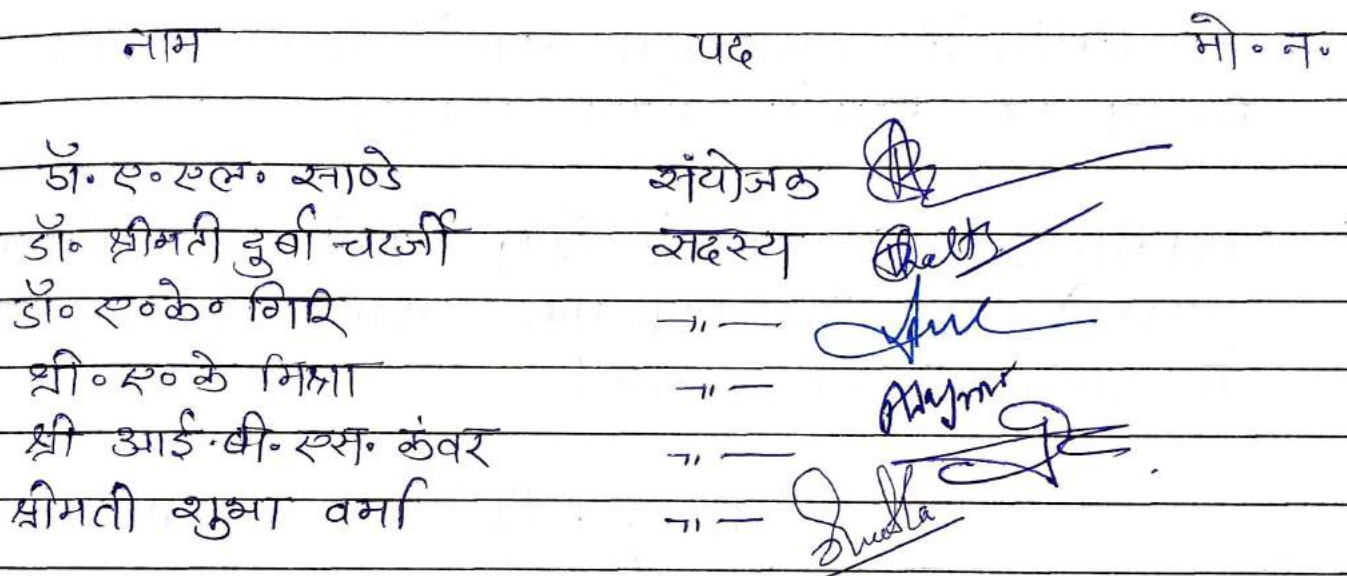 नाम पद मो॰ न॰
डॉ॰ ए॰ एल॰ साण्डे संयोजक
डॉ॰ श्रीमती दुर्बा चटर्जी सदस्य
डॉ॰ ए॰ के॰ गिरि —"—
श्री॰ ए॰ के मिश्रा —"—
श्री आई॰ बी॰ एस॰ कंवर —"—
श्रीमती शुभ्रा वर्मा —"—